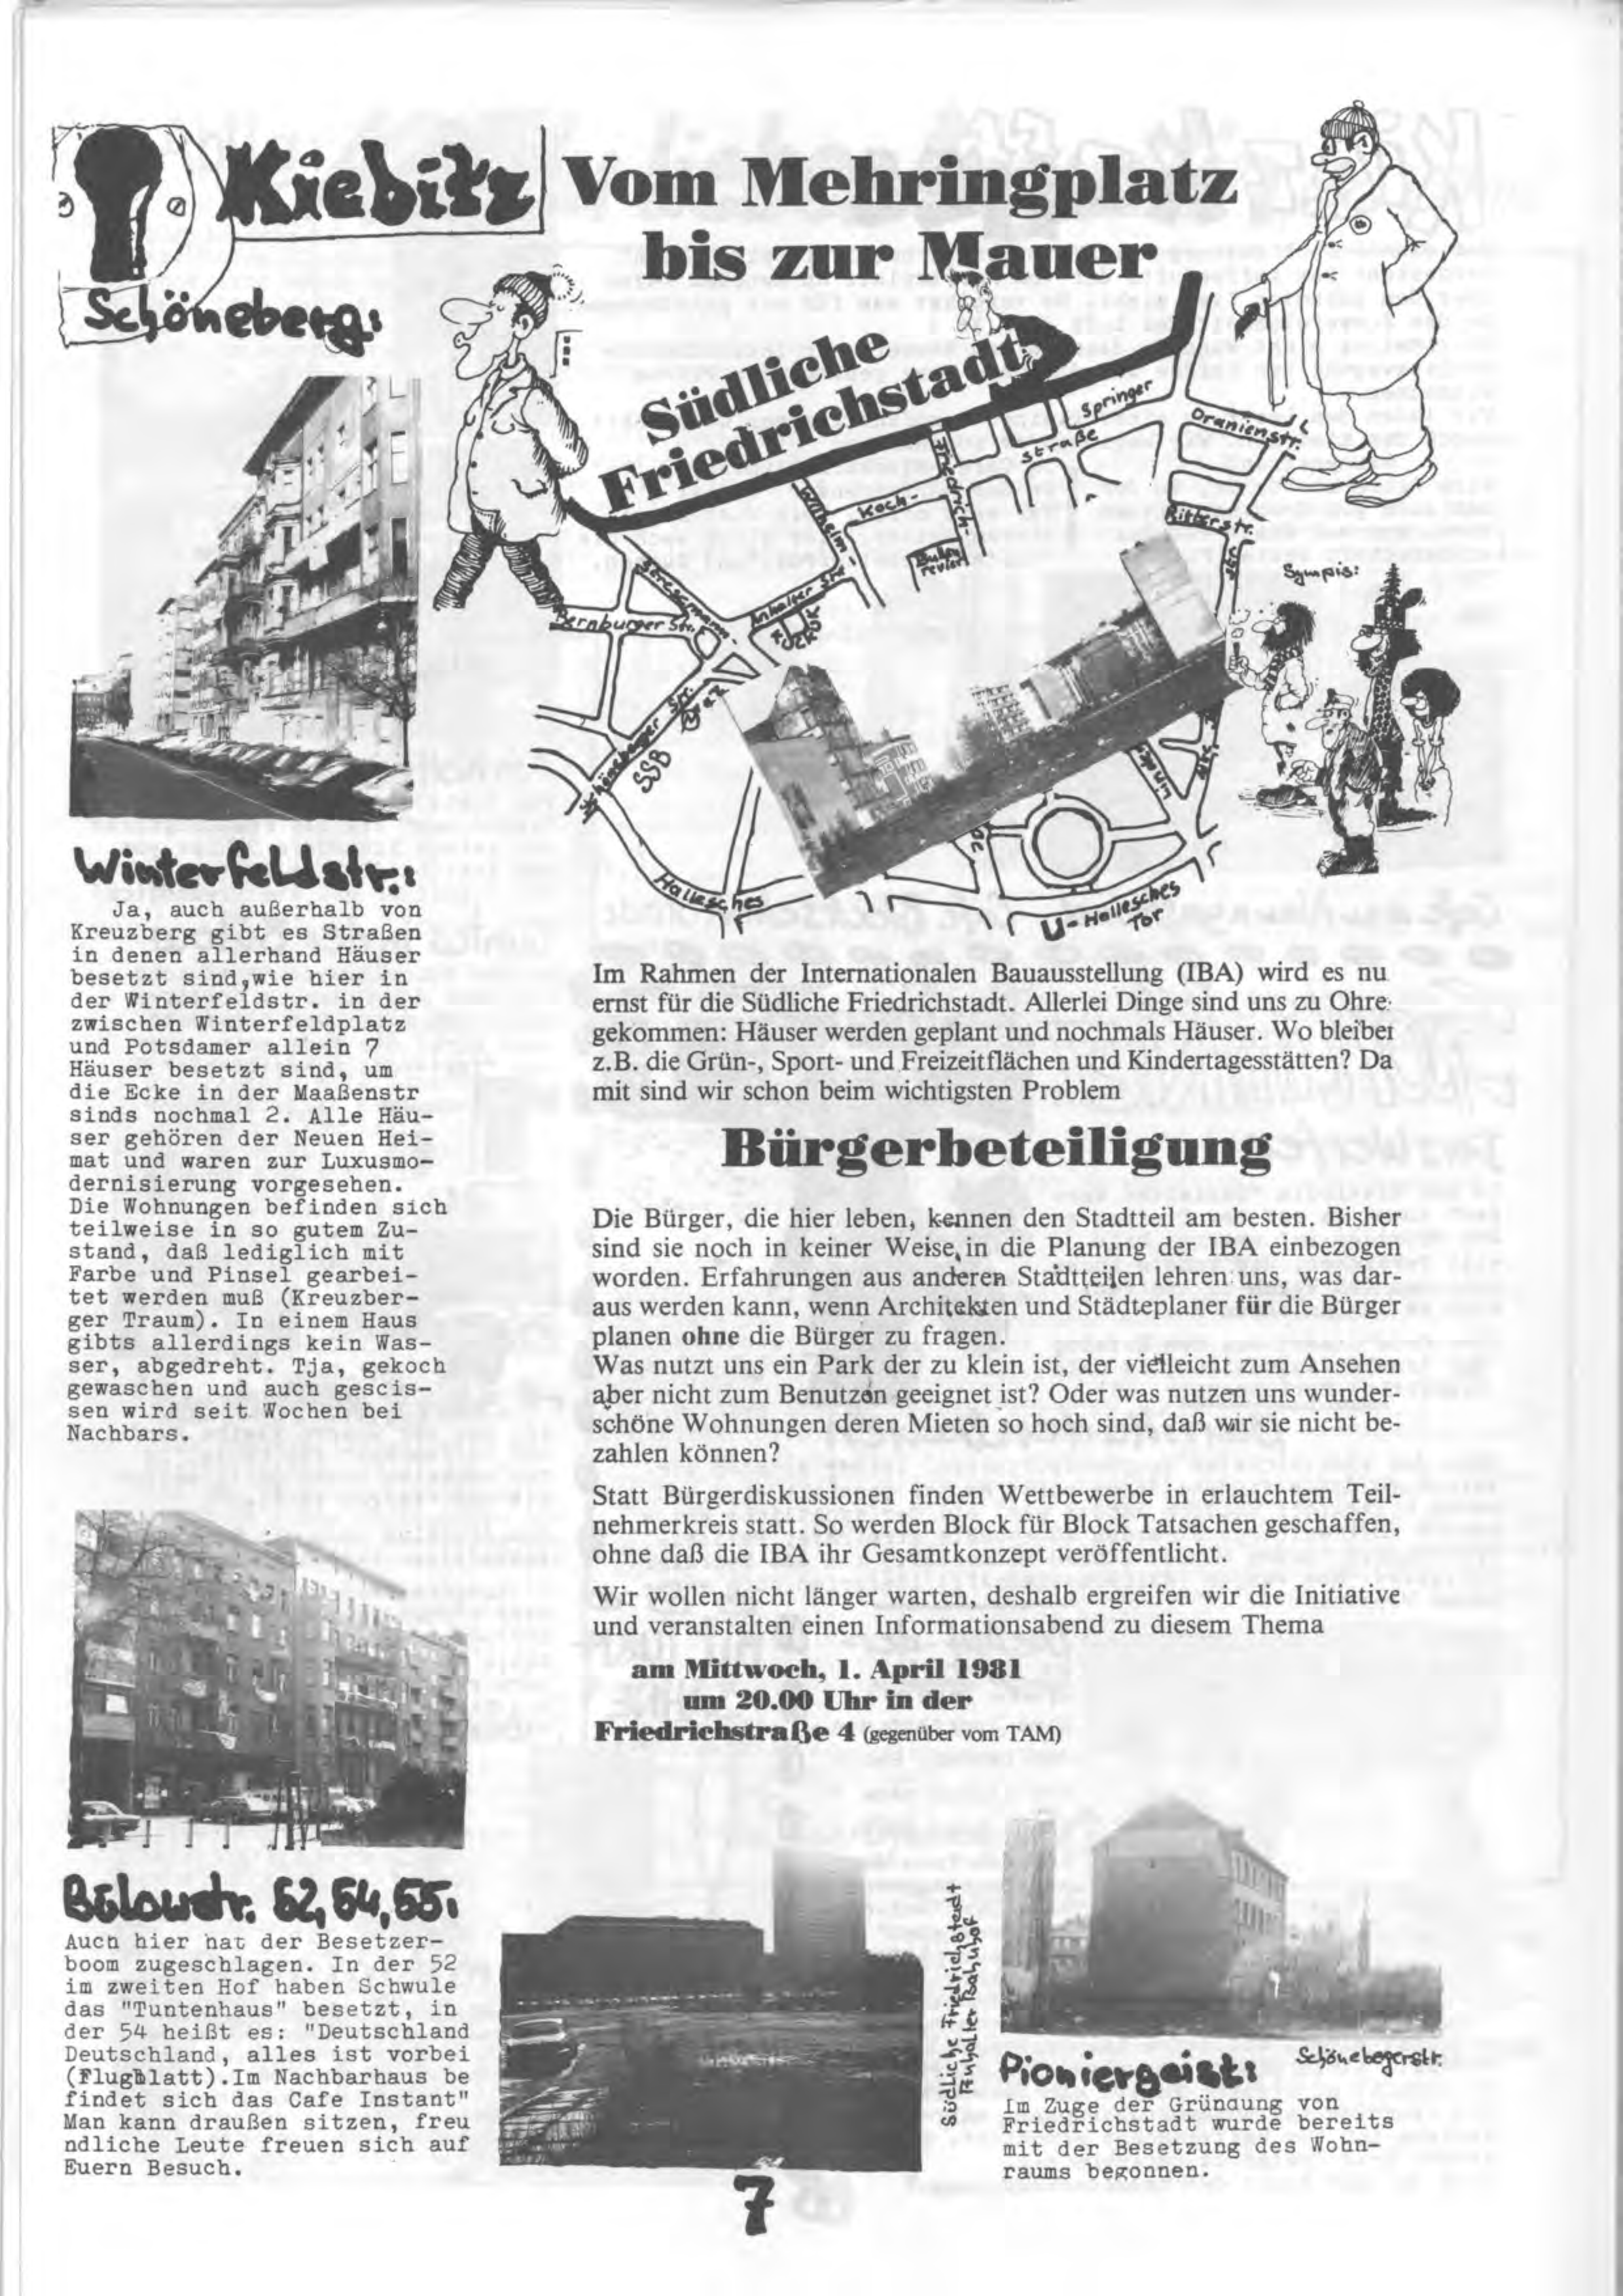 Kiebitz
Schöneberg:
Vom Mehringplatz
bis zur Mauer
Südliche
Friedrichstadt
Springer
Oranienstr.
straße
Friedrich-
Koch-
Wilhelm-
Ritterstr.
Anhalter Str.
Stresemann-
Bernburger Str.
KUCKUCK
Schöneberger Str.
SSB
Sympis:
Hallesches
U-Hallesches
Tor
Winterfeldstr.:
Ja, auch außerhalb von
Kreuzberg gibt es Straßen
in denen allerhand Häuser
besetzt sind,wie hier in
der Winterfeldstr. in der
zwischen Winterfeldplatz
und Potsdamer allein 7
Häuser besetzt sind, um
die Ecke in der Maaßenstr
sinds nochmal 2. Alle Häu-
ser gehören der Neuen Hei-
mat und waren zur Luxusmo-
dernisierung vorgesehen.
Die Wohnungen befinden sich
teilweise in so gutem Zu-
stand, daß lediglich mit
Farbe und Pinsel gearbei-
tet werden muß (Kreuzber-
ger Traum). In einem Haus
gibts allerdings kein Was-
ser, abgedreht. Tja, gekoch
gewaschen und auch gescis-
sen wird seit Wochen bei
Nachbars.
Bülowstr. 52,54,55:
Auch hier hat der Besetzer-
boom zugeschlagen. In der 52
im zweiten Hof haben Schwule
das "Tuntenhaus" besetzt, in
der 54 heißt es: "Deutschland
Deutschland, alles ist vorbei
(Flugblatt).Im Nachbarhaus be
findet sich das Cafe Instant"
Man kann draußen sitzen, freu
ndliche Leute freuen sich auf
Euern Besuch.
Im Rahmen der Internationalen Bauausstellung (IBA) wird es nu
ernst für die Südliche Friedrichstadt. Allerlei Dinge sind uns zu Ohre
gekommen: Häuser werden geplant und nochmals Häuser. Wo bleiber
z.B. die Grün-, Sport- und Freizeitflächen und Kindertagesstätten? Da
mit sind wir schon beim wichtigsten Problem
Bürgerbeteiligung
Die Bürger, die hier leben, kennen den Stadtteil am besten. Bisher
sind sie noch in keiner Weise in die Planung der IBA einbezogen
worden. Erfahrungen aus anderen Stadtteilen lehren uns, was dar-
aus werden kann, wenn Architekten und Städteplaner für die Bürger
planen ohne die Bürger zu fragen.
Was nutzt uns ein Park der zu klein ist, der vielleicht zum Ansehen
aber nicht zum Benutzen geeignet ist? Oder was nutzen uns wunder-
schöne Wohnungen deren Mieten so hoch sind, daß wir sie nicht be-
zahlen können?
Statt Bürgerdiskussionen finden Wettbewerbe in erlauchtem Teil-
nehmerkreis statt. So werden Block für Block Tatsachen geschaffen,
ohne daß die IBA ihr Gesamtkonzept veröffentlicht.
Wir wollen nicht länger warten, deshalb ergreifen wir die Initiative
und veranstalten einen Informationsabend zu diesem Thema
am Mittwoch, 1. April 1981
um 20.00 Uhr in der
Friedrichstraße 4 (gegenüber vom TAM)
Südliche Friedrichstadt
Anhalter Bahnhof
Schönebegerstr.
Pioniergeist:
Im Zuge der Gründung von
Friedrichstadt wurde bereits
mit der Besetzung des Wohn-
raums begonnen.
7